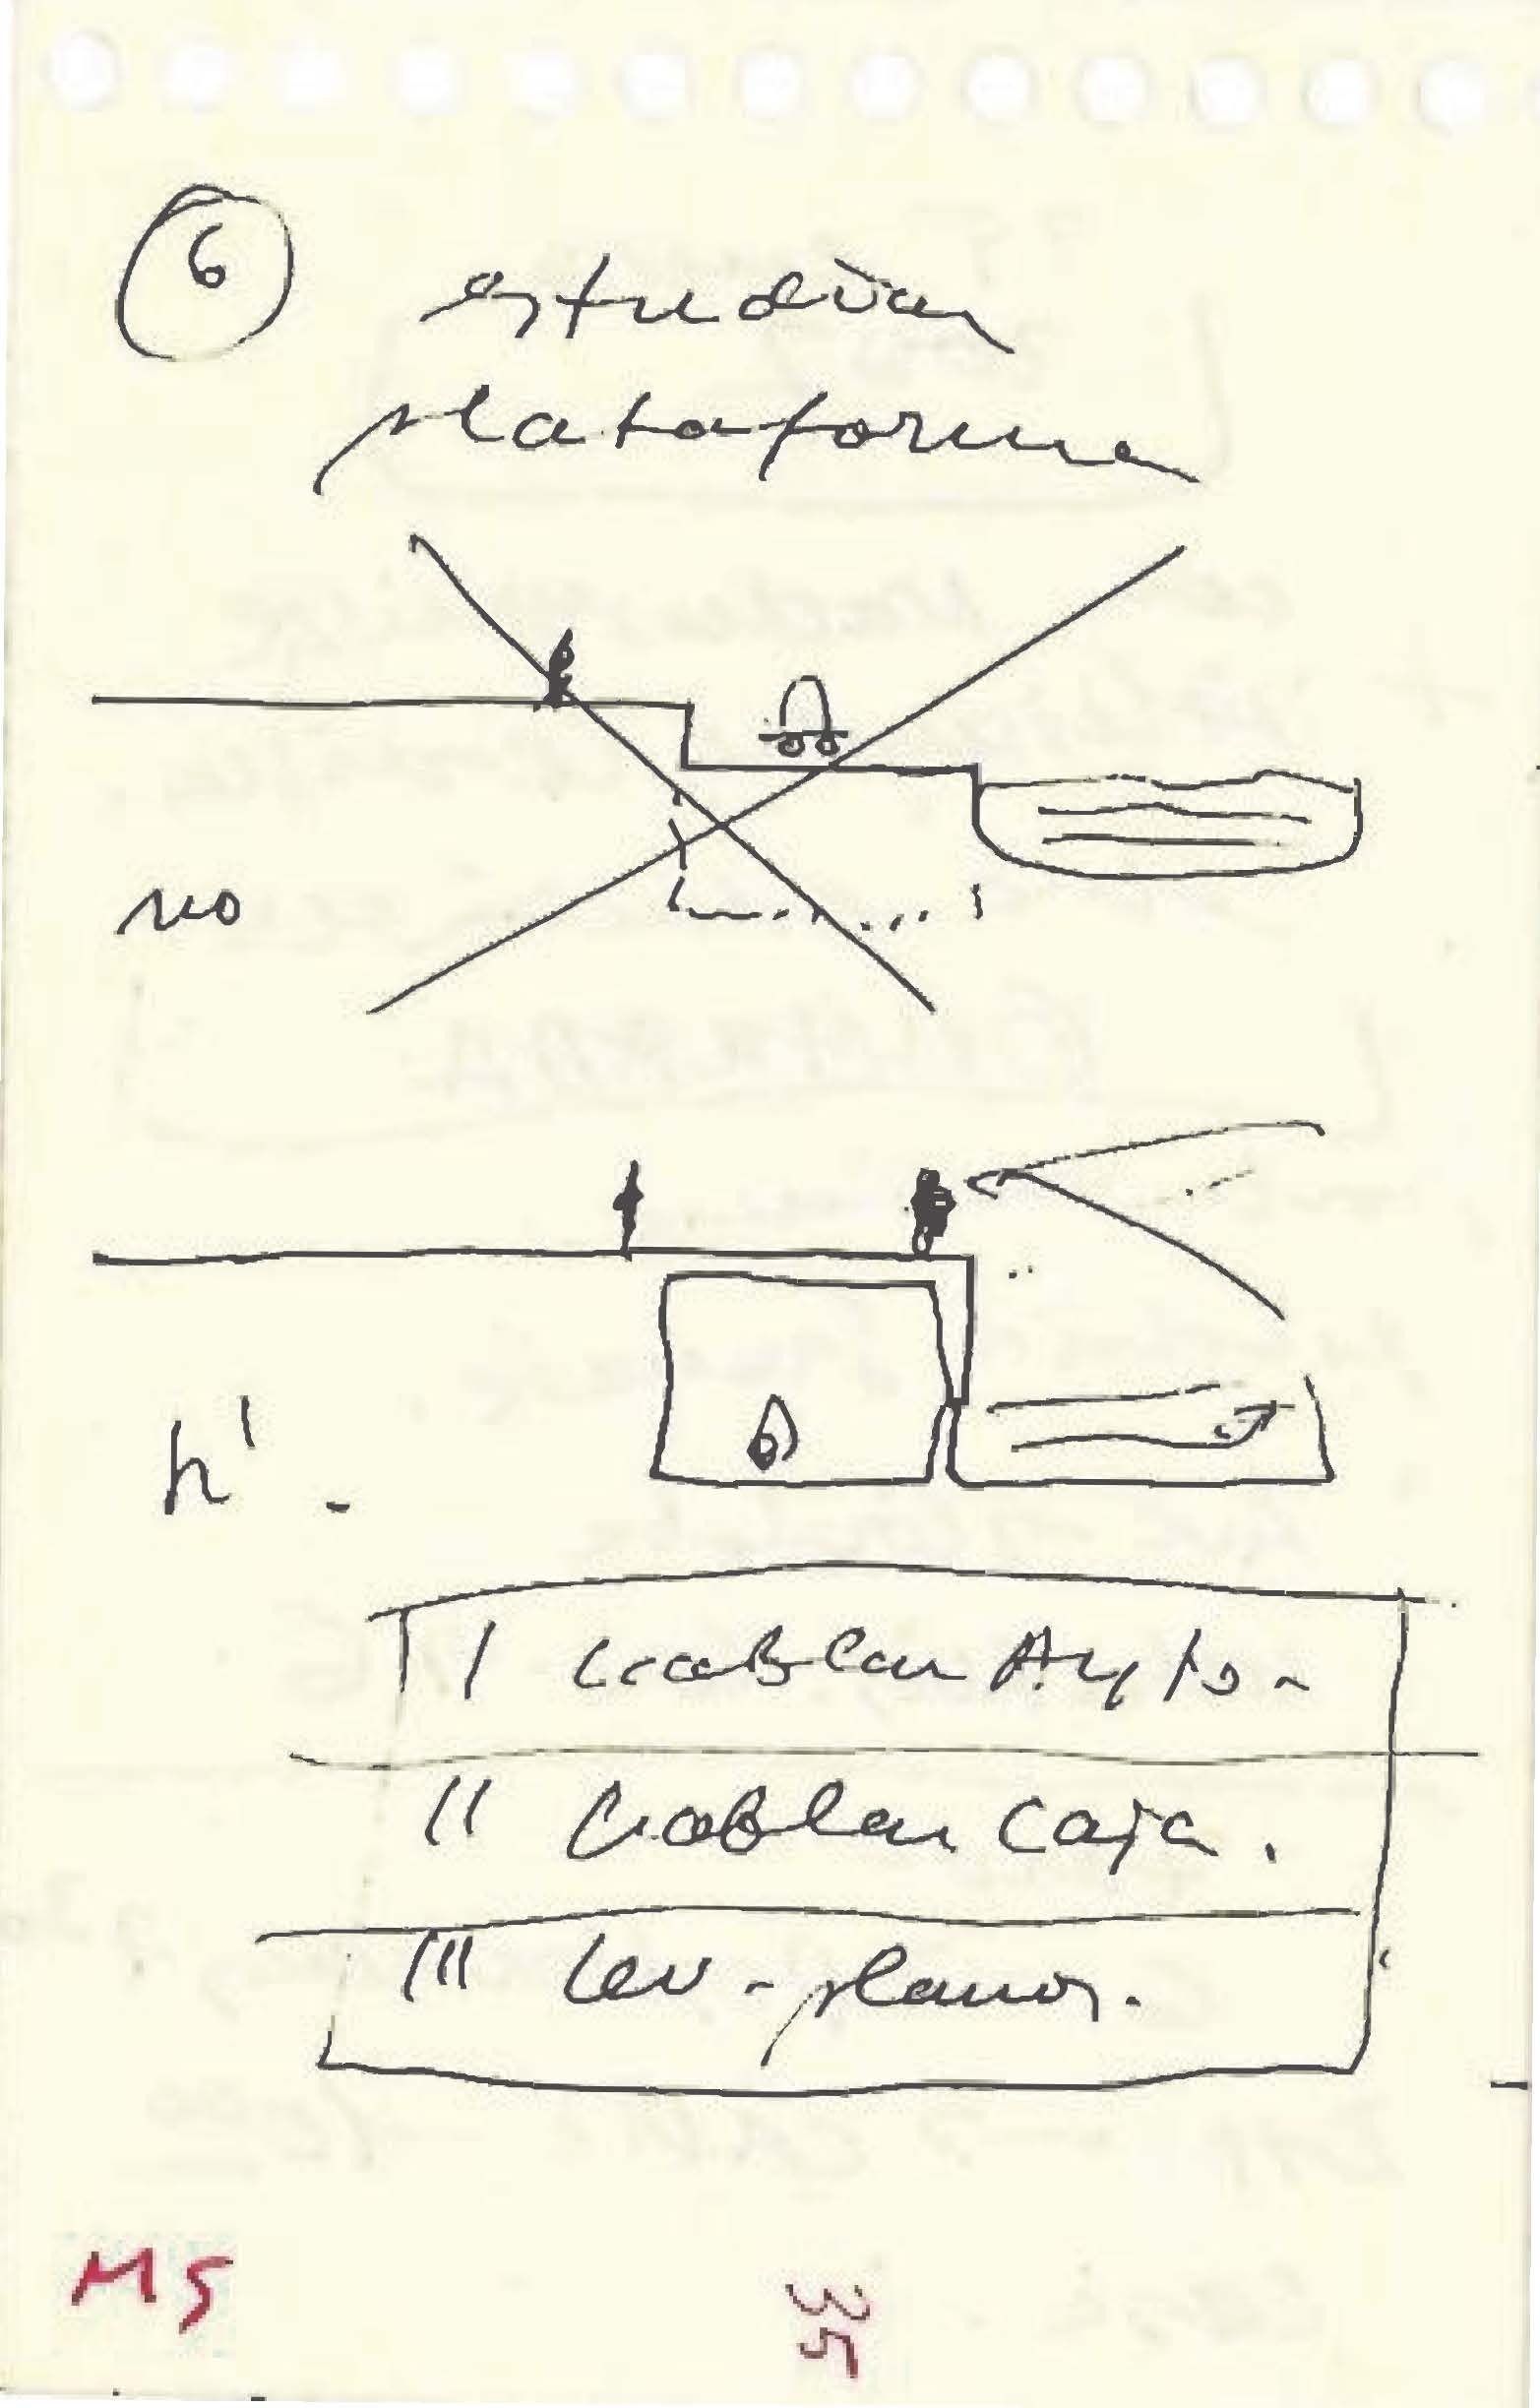 6 estudiar
plataforma
no
si.
I hablar Ayto-
II hablar Caja.
III lev-planos.
MS
35